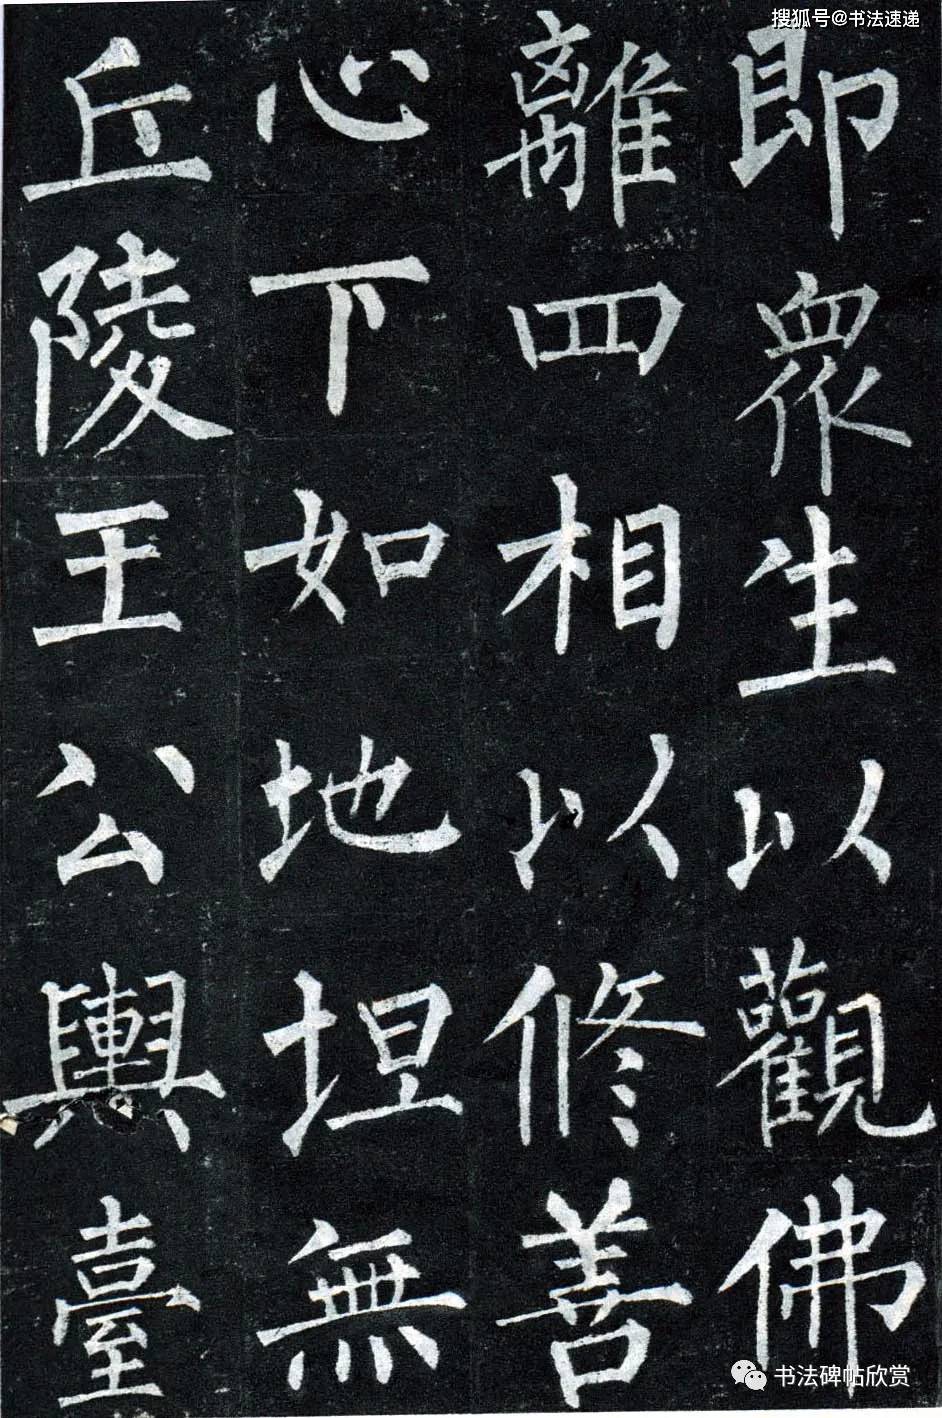 搜狐号@书法速递
即眾生以觀佛
離四相以修善
心下如地坦無
丘陵王公輿臺
书法碑帖欣赏